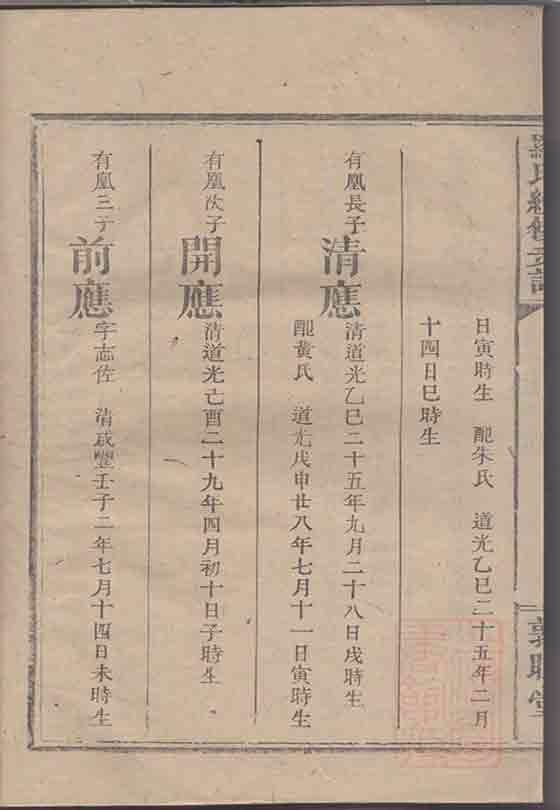 日寅時生 配朱氏 道光乙巳二十五年二月
十四日巳時生
有凰長子 清應 清道光乙巳二十五年九月二十八日戌時生
配黄氏 道光戊申廿八年七月十一日寅時生
有凰次子 開應 清道光己酉二十九年四月初十日子時生
有凰三子 前應 字志佐 清咸豐壬子二年七月十四日未時生